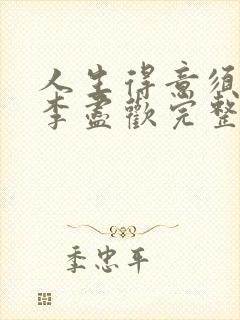 人生得意须
李盡歡完整
季忠平